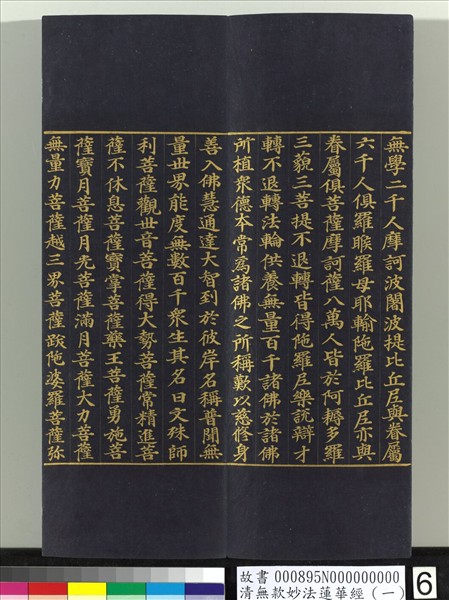 無學二千人摩訶波闍波提比丘尼與眷屬
六千人俱羅睺羅母耶輸陀羅比丘尼亦與
眷屬俱菩薩摩訶薩八萬人皆於阿耨多羅
三藐三菩提不退轉皆得陁羅尼樂說辯才
轉不退轉法輪供養無量百千諸佛於諸佛
所植衆德本常爲諸佛之所稱歎以慈修身
善入佛慧通達大智到於彼岸名稱普聞無
量世界能度無數百千衆生其名曰文殊師
利菩薩觀世音菩薩得大勢菩薩常精進菩
薩不休息菩薩寶掌菩薩藥王菩薩勇施菩
薩寶月菩薩月光菩薩滿月菩薩大力菩薩
無量力菩薩越三界菩薩跋陁婆羅菩薩弥
故書 000895N000000000
清無款妙法蓮華經(一)
6